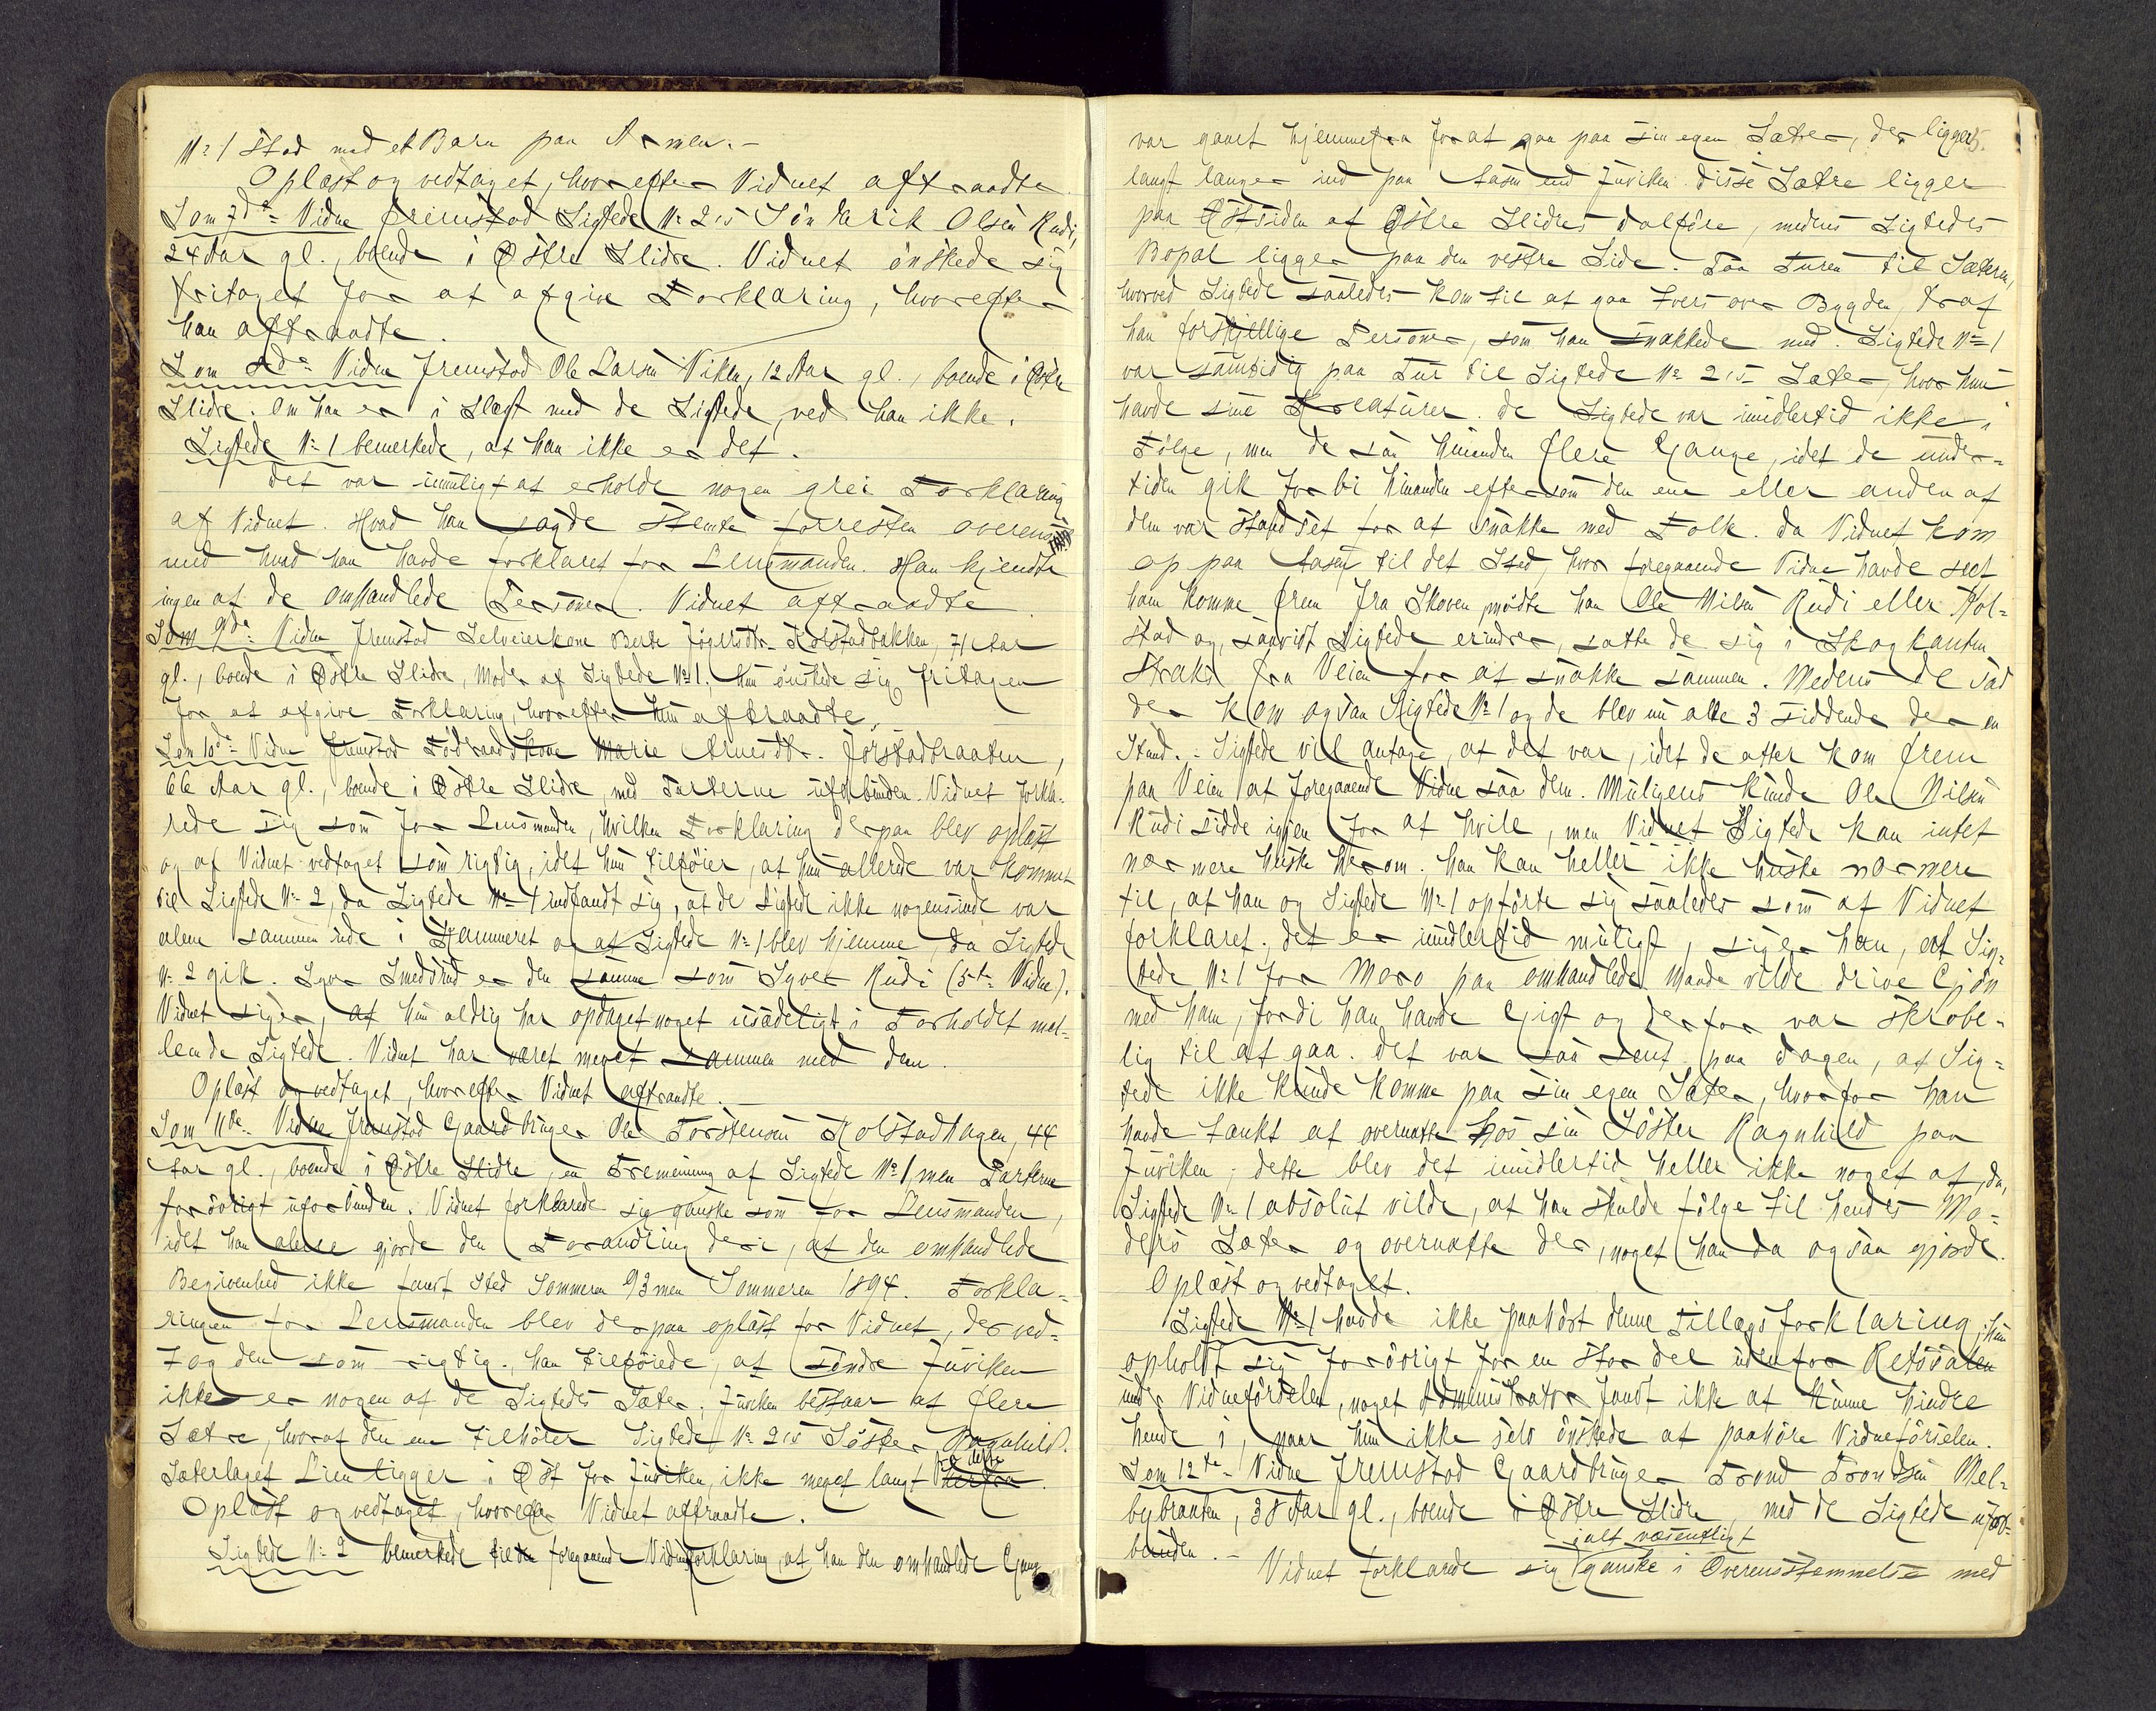 № 1 stod med et Barn paa Armen.-
Oplæst og vedtaget, hvorefter Vidnet aftraadte.
Som 7de Vidne fremstod Sigtede № 2's Søn Parik Olsen Rudi,
24 Aar gl., boende i Østre Slidre. Vidnet ønskede sig
fritaget for at afgive Forklaring, hvorefter
han aftraadte.
Som 8de Vidne fremstod Ole Larsen Viken, 12 Aar gl., boende i Østre
Slidre. Om han er i Slægt med de Sigtede, ved han ikke.
Sigtede № 1 bemerkede, at han ikke er det.
Det var umuligt at erholde nogen grei Forklaring
af Vidnet. Hvad han sagde stemte forresten overens
med hvad han havde forklaret for Lensmanden. Han kjendte
ingen af de omhandlede Personer. Vidnet aftraadte
Som 9de Vidne fremstod Selveierkone Berte Kolstadbakken, 71 Aar
gl., boende i Østre Slidre, Moder af Sigtede № 1. Hun ønskede sig fritagen
for at afgive Forklaring, hvorefter hun aftraadte.
Som 10de Vidne fremstod Føderaadskone Marie Arnesdtr. Jørstadbraaten,
66 Aar gl., boende i Østre Slidre, med Parterne uforbunden. Vidnet forkla-
rede sig som for Lensmanden, hvilken Forklaring derpaa blev oplæst
og af Vidnet vedtaget som rigtig, idet hun tilføier, at hun allerede var kommet
til Sigtede № 2, da Sigtede № 1 indfandt sig, at de Sigtede ikke nogensinde var
alene sammen inde i Kammeret og at Sigtede № 1 blev hjemme da Sigtede
№ 2 gik. Syver Smedsrud er den samme som Syver Rudi (5te Vidne).
Vidnet siger, at hun aldrig har opdaget noget usædeligt i Forholdet mel-
lem de Sigtede. Vidnet har været meget sammen med dem.
Oplæst og vedtaget, hvorefter Vidnet aftraadte.-
Som 11te Vidne fremstod Gaardbruger Ole Torstensen Kolstadhagen, 44
Aar gl., boende i Østre Slidre, en Tremenning af Sigtede № 1, men Parterne
forøvrigt uforbunden. Vidnet forklarede sig ganske som for Lensmanden,
idet han alene gjorde den Forandring deri, at den omhandlede
Begivenhed ikke fandt Sted Sommeren 93 men Sommeren 1894. Forkla-
ringen for Lensmanden blev derpaa oplæst for Vidnet, der ved-
tog den som rigtig. Han tilføiede, at søndre Juviken
ikke er nogen af de Sigtedes Sæter. Juviken bestaar af flere
Sætre, hvoraf den ene tilhører Sigtede № 2's Søster Ragnhild.
Sæterlaget Lien ligger i Øst for Juviken, ikke meget langt fra dette herfra.
Oplæst og vedtaget, hvorefter Vidnet aftraadte.
Sigtede № 2 bemerkede til den foregaaende Vidneforklaring, at han den omhandlede Gang
var gaaet hjemmefra for at gaa paa sin egen Sæter, der ligger
langt længer ind paa Aasen end Juviken. Disse Sætre ligger
paa Østsiden af Østre Slidres Dalføre, medens Sigtedes
Bopæl ligger paa den vestre Side. Paa Turen til Sæteren,
hvorved Sigtede saaledes kom til at gaa tvers over Bygden, traf
han forskjellige Personer, som han snakkede med. Sigtede № 1
var samtidig paa Tur til Sigtede № 2's Sæter, hvor hun
havde sine Kreaturer. De Sigtede var imidlertid ikke i
Følge, men de saa hinanden flere Gange, idet de under-
tiden gik forbi hinanden eftersom den ene eller anden af
dem var standset for at snakke med Folk. Da Vidnet kom
op paa Aasen til det Sted, hvor foregaaende Vidne havde seet
ham komme frem fra Skoven, mødte han Ole Nilsen Rudi eller Kol-
stad og, saavidt Sigtede erindrer, satte de sig i Skogkanten
straks fra Veien for at snakke sammen. Medens de sad
der kom ogsaa Sigtede № 1 og de blev nu alle 3 siddende der en
Stund.- Sigtede vil antage, at det var, idet de atter kom frem
paa Veien at foregaaende Vidne saa dem. Muligens kunde Ole Nilsen
Rudi sidde igjen for at hvile, men Vidnet Sigtede kan intet
nærmere huske herom. Han kan heller ikke huske nærmere
til, at han og Sigtede № 1 opførte sig saaledes som af Vidnet
forklaret. Det er imidlertid muligt, siger han, at Sig-
tede № 1 for Moro paa omhandlede Maade vilde drive Gjøn
med ham, fordi han havde Gigt og derfor var skrøbe-
lig til at gaa. Det var saa sent paa Dagen, at Sig-
tede ikke kunde komme paa sin egen Sæter, hvorfor han
havde tænkt at overnatte hos sin Søster Ragnhild paa
Juviken; dette blev det imidlertid heller ikke noget af, da
Sigtede № 1 absolut vilde, at han skulde følge til hendes Mo-
ders Sæter og overnatte der, noget han da ogsaa gjorde.
Oplæst og vedtaget.
Sigtede № 1 havde ikke paahørt denne Tillægsforklaring; hun
opholdt sig forøvrigt for en stor Del udenfor Retssalen
under Vidneførselen, noget Administrator fandt ikke at kunne hindre
hende i, naar hun ikke selv ønskede at paahøre Vidneførselen.
Som 12te Vidne fremstod Gaardbruger Trond Trondsen Mel-
bybraaten, 38 Aar gl., boende i Østre Slidre, med de Sigtede ufor-
bunden.-
i alt væsentligt
Vidnet forklarede sig ganske i Overensstemmelse med